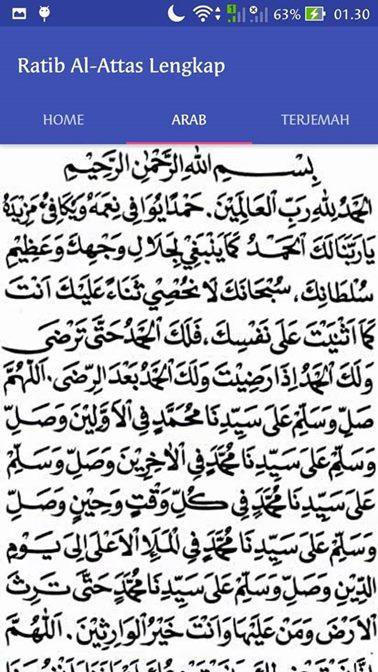 63% 01.30
Ratib Al-Attas Lengkap
HOME ARAB TERJEMAH
بِسْمِ اللهِ الرَّحْمٰنِ الرَّحِيْمِ
اَلْحَمْدُ لِلهِ رَبِّ الْعَالَمِيْنَ. حَمْدًا يُوَافِى نِعَمَهُ وَيُكَافِئُ مَزِيْدَهُ
يَارَبَّنَا لَكَ الْحَمْدُ كَمَا يَنْبَغِيْ لِجَلَالِ وَجْهِكَ وَعَظِيْمِ
سُلْطَانِكَ، سُبْحَانَكَ لَا نُحْصِيْ ثَنَاءً عَلَيْكَ اَنْتَ
كَمَا اَثْنَيْتَ عَلَى نَفْسِكَ، فَلَكَ الْحَمْدُ حَتَّى تَرْضَى
وَلَكَ الْحَمْدُ اِذَا رَضِيْتَ وَلَكَ الْحَمْدُ بَعْدَ الرِّضَى. اَللّٰهُمَّ
صَلِّ وَسَلِّمْ عَلَى سَيِّدِنَا مُحَمَّدٍ فِي الْاَوَّلِيْنَ وَصَلِّ
وَسَلِّمْ عَلَى سَيِّدِنَا مُحَمَّدٍ فِي الْاٰخِرِيْنَ وَصَلِّ وَسَلِّمْ
عَلَى سَيِّدِنَا مُحَمَّدٍ فِي كُلِّ وَقْتٍ وَحِيْنٍ وَصَلِّ
وَسَلِّمْ عَلَى سَيِّدِنَا مُحَمَّدٍ فِي الْمَلَإِ الْاَعْلَى اِلَى يَوْمِ
الدِّيْنِ وَصَلِّ وَسَلِّمْ عَلَى سَيِّدِنَا مُحَمَّدٍ حَتَّى تَرِثَ
الْاَرْضَ وَمَنْ عَلَيْهَا وَاَنْتَ خَيْرُ الْوَارِثِيْنَ. اَللّٰهُمَّ